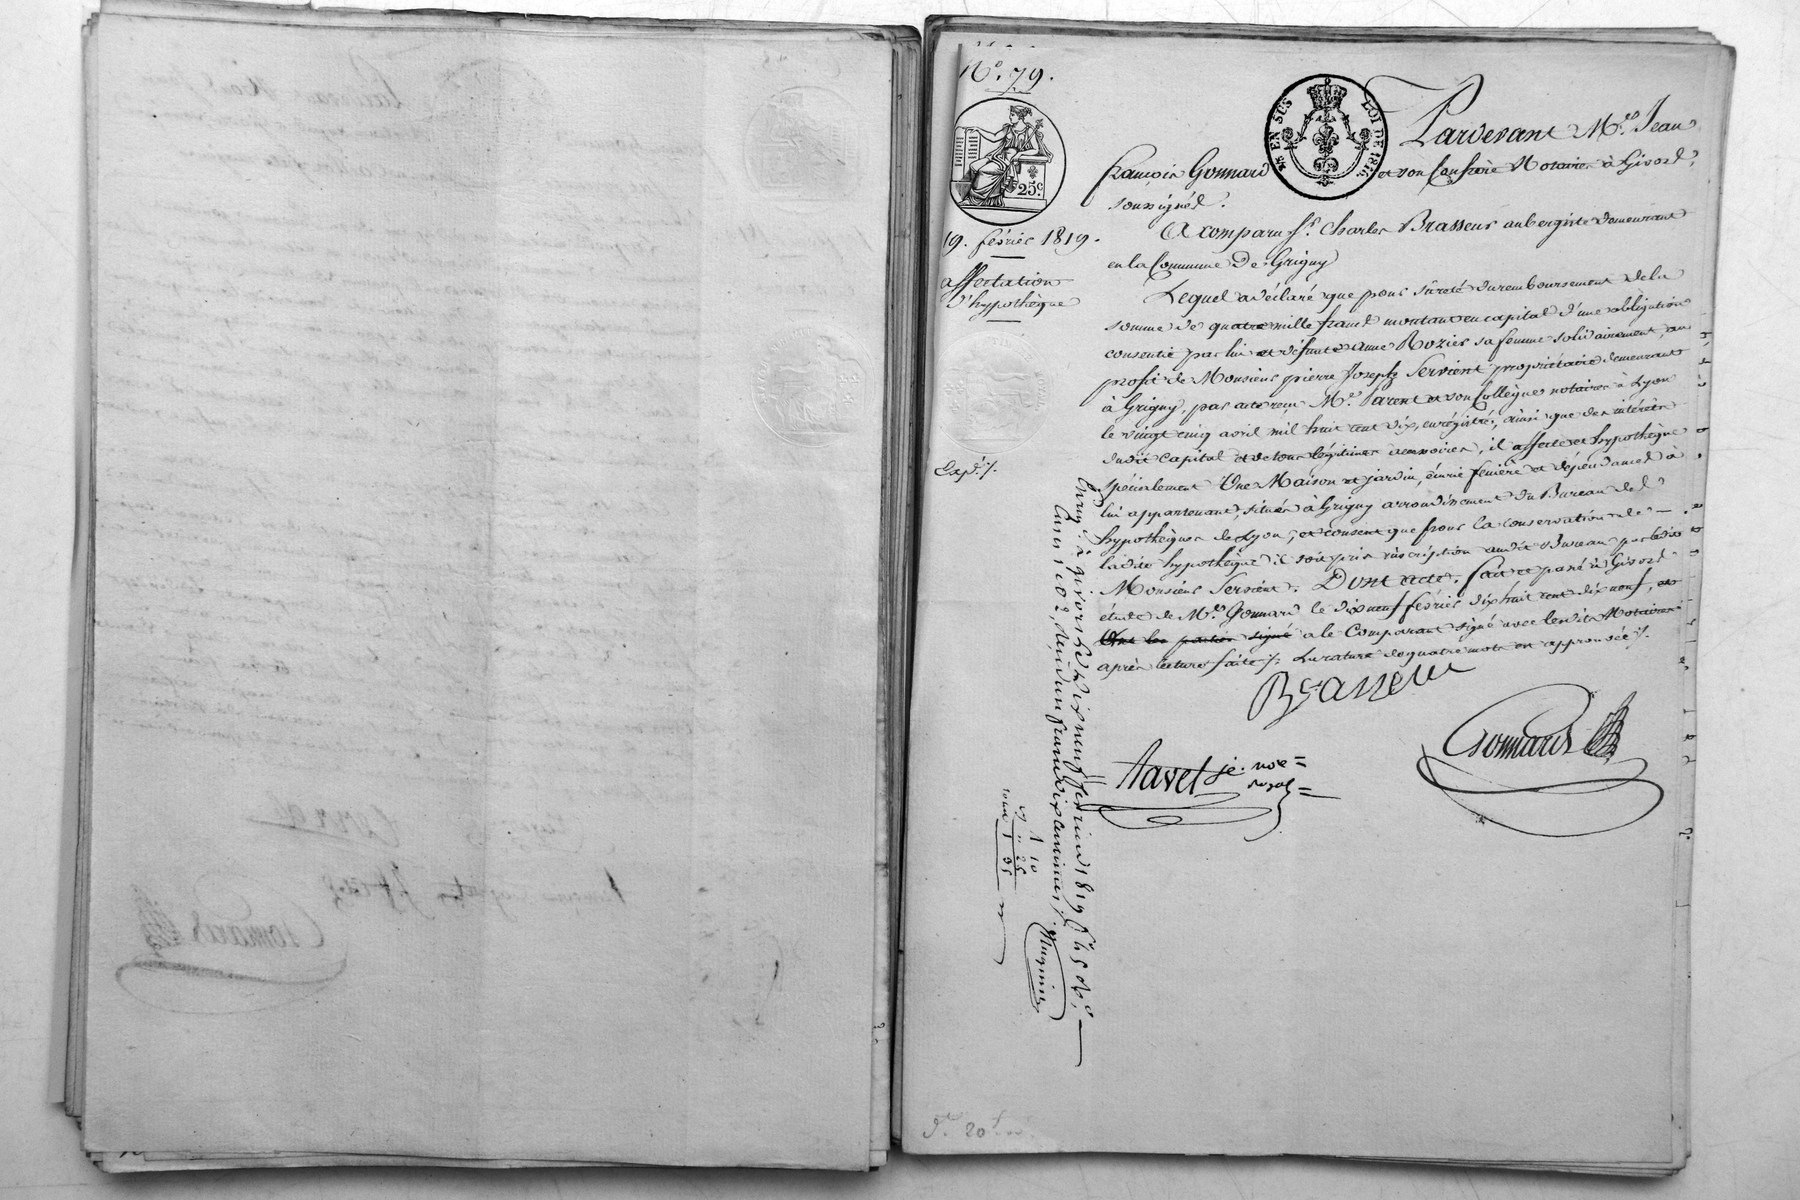 N.º 79.
25.c
EN SUS LOI DE 1816
19. février 1819.
affectation
d'hypothèque
Expd. /.
Pardevant M.e Jean
françois Gonnard et son Confrère Notaires à Givors,
soussignés.
A comparu Sr. Charles Brasseur aubergiste demeurant
en la Commune de Grigny
Lequel a déclaré que pour sûreté du remboursement de la
somme de quatre mille francs montant en capital d'une obligation
consentie par lui et défunte anne Rozier sa femme solidairement, au
profit de Monsieur pierre Joseph Servient propriétaire demeurant
à Grigny, par acte reçu M.e Parent et son Collègue notaires à Lyon
le vingt cinq avril mil huit cent dix, enrégistré, ainsi que des intérêts
dudit capital et de tous légitimes accessoires, il affecte et hypothèque
spécialement Une Maison et jardin, écurie fenière et dépendances à
lui appartenant, situés à Grigny arrondissement du Bureau des
hypothèques de Lyon, et consent que pour la conservation de
ladite hypothèque il soit pris inscription audit Bureau par ledit
Monsieur Servient. Dont acte, fait et passé à Givors
étude de M.e Gonnard le dix neuf février dix huit cent dix neuf, et
Ont les parties signé a le Comparant signé avec lesdits Notaires
après lecture faite /. Surature de quatre mots en approuvée /.
Brasseur
Gonnard
favel je. nore
royal
Enreg. à givors le dix neuf février 1819 f.º 45
Reçu un franc dix centimes /.
1 10
25
1 35
20f